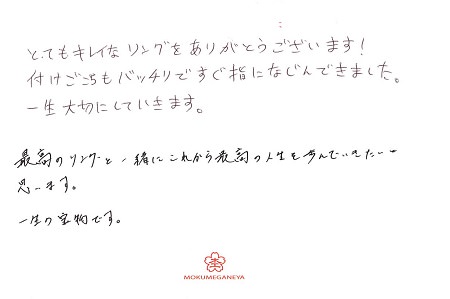 とてもキレイなリングをありがとうございます!
付けごこちもバッチリですぐ指になじんできました。
一生大切にしていきます。
最高のリングと一緒にこれから最高の人生を歩んでいきたいと
思います。
一生の宝物です。
MOKUMEGANEYA